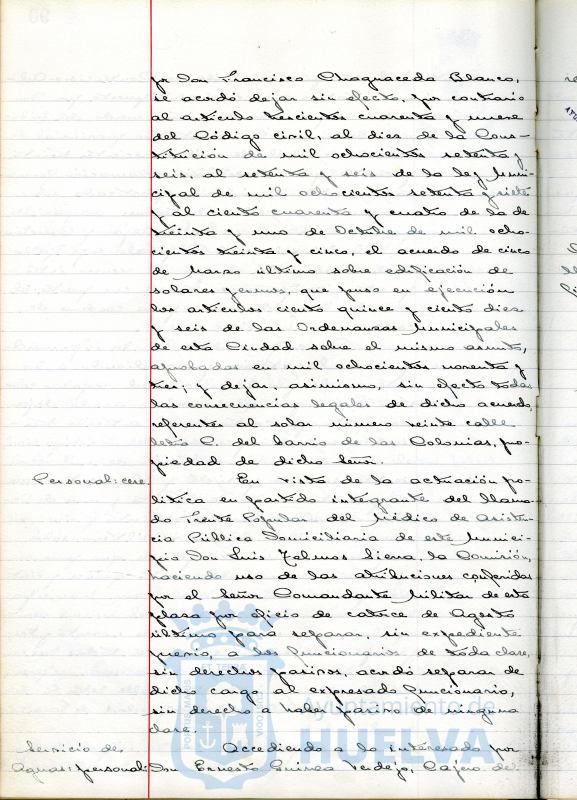 por Don Francisco Chaguaceda Blanco,
se acordó dejar sin efecto, por contrario
al artículo trescientos cuarenta y nueve
del Código civil, al diez de la Cons-
titución de mil ochocientos setenta y
seis, al setenta y seis de la ley Muni-
cipal de mil ochocientos setenta y siete
y al ciento cuarenta y cuatro de la de
treinta y uno de Octubre de mil ocho-
cientos treinta y cinco, el acuerdo de cinco
de Marzo último sobre edificación de
solares yermos, que puso en ejecución
los artículos ciento quince y ciento diez
y seis de las Ordenanzas Municipales
de esta Ciudad sobre el mismo asunto,
aprobadas en mil ochocientos noventa y
tres; y dejar, asimismo, sin efecto todas
las consecuencias legales de dicho acuerdo,
referentes al solar número veinte calle
letra C. del barrio de las Colonias, pro-
piedad de dicho Señor.
Personal: cese. En vista de la actuación po-
lítica en partido integrante del llama-
do Frente Popular del Médico de Asisten-
cia Pública Domiciliaria de este Munici-
pio Don Luis Telmos Sierra, la Comisión,
haciendo uso de las atribuciones conferidas
por el Señor Comandante Militar de esta
plaza por oficio de catorce de Agosto
último para separar, sin expediente
previo, a los funcionarios de toda clase,
sin derechos pasivos, acordó separar de
dicho cargo al expresado funcionario,
sin derecho a haber pasivo de ninguna
clase.
Servicio de Accediendo a lo interesado por
Aguas: personal: Don Ernesto Guinea Verdejo, Cajero de
Ayuntamiento de
HUELVA